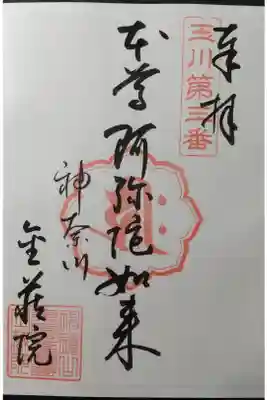 奉拝
玉川第三番
本尊阿弥陀如来
神奈川
金蔵院